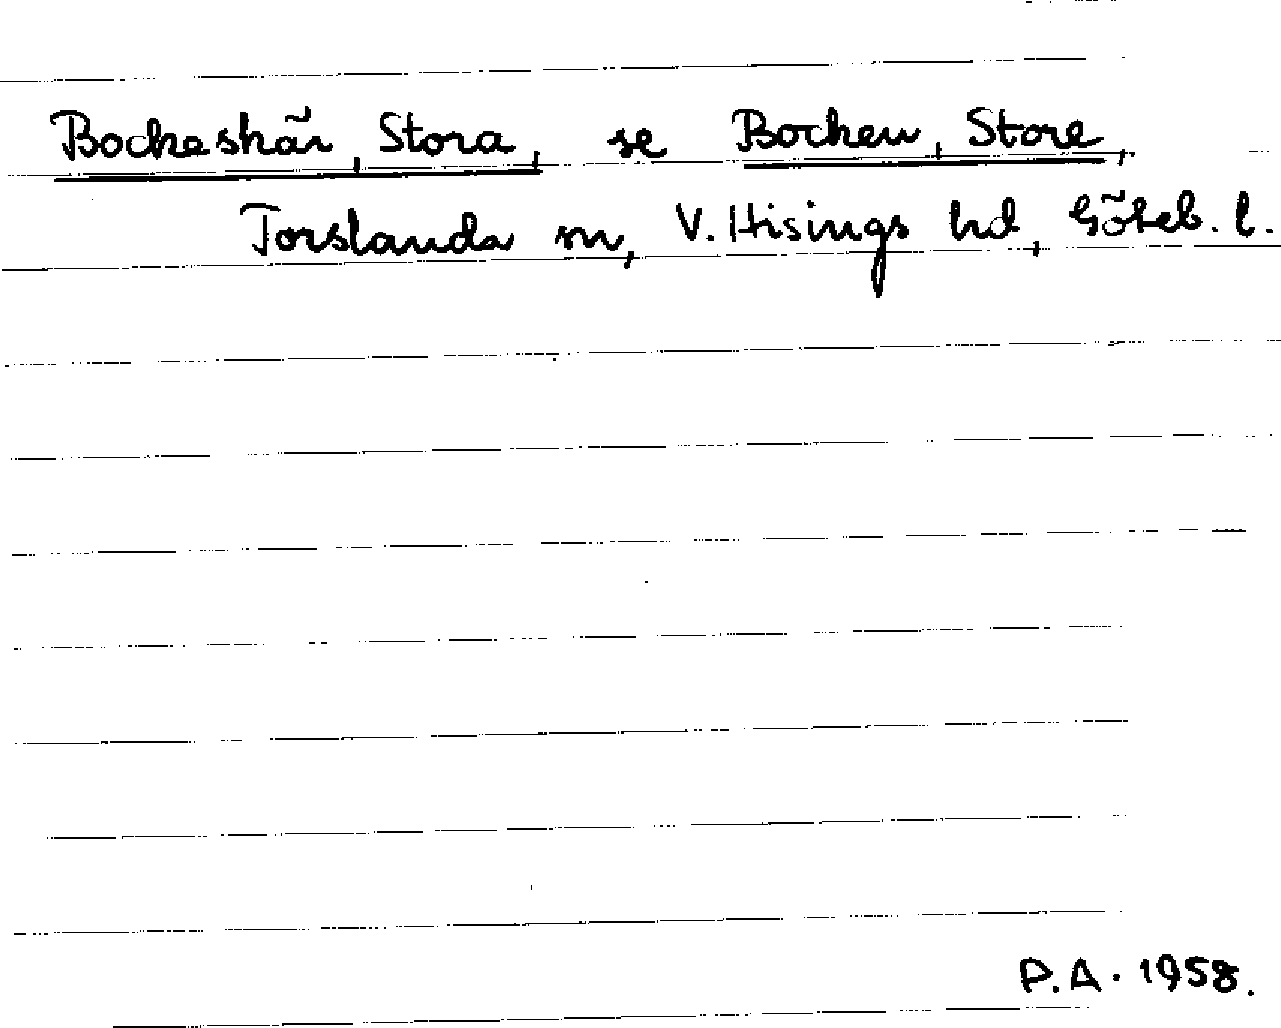 Bockeskär, Stora, se Bocken, Store,
Torslanda sn, V. Hisings hd, Göteb. l.
P.A. 1958.